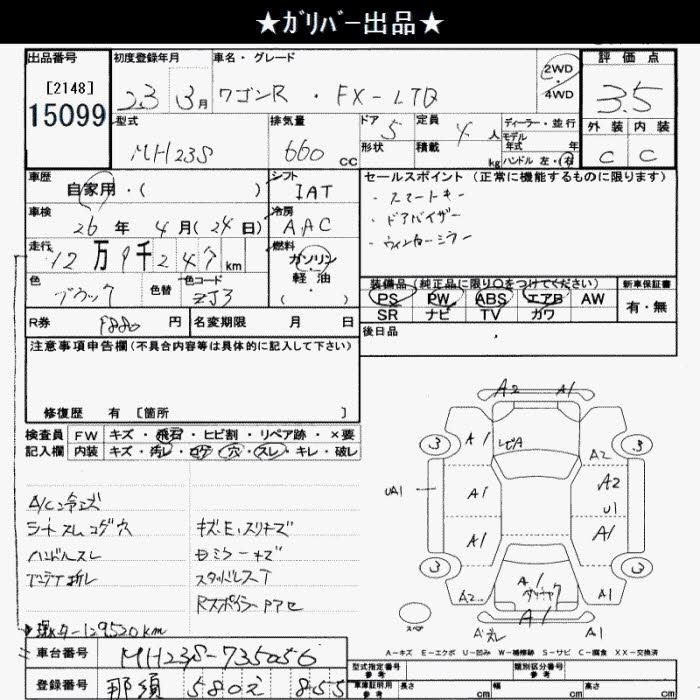 ★ｶﾞﾘﾊﾞｰ出品★
出品番号 初度登録年月 車名・グレード 2WD 4WD 評価点
[2148]
15099
23 3月 ワゴンR ・ FX-LTD 3.5
型式 排気量 ドア 定員 ディーラー・並行 外装 内装
MH23S 660 CC 5 4人 モデル年式 年 C C
形状 積載 kg ハンドル 左・右
車歴 シフト セールスポイント (正常に機能するものに限ります)
自家用・( ) IAT ・スマートキー
車検 冷房 ・ドアバイザー
26年 4月(24日) AAC ・ウィンカーミラー
走行 燃料
12万9千24 km ガソリン・軽油・( )
色 色替 色コード 装備品(純正品に限り○をつけてください) 新車保証書
ブラック ZJ3 PS PW ABS エアB AW 有・無
SR ナビ TV カワ
R券 8880円 名変期限 月 日 後日品
注意事項申告欄(不具合内容等は具体的に記入して下さい)
修復歴 有 [箇所 ]
検査員 FW キズ・飛石・ヒビ割・リペア跡・×要
記入欄 内装 キズ・汚レ・コゲ・穴・スレ・キレ・破レ
A/C冷エズ
シートスレコゲ穴 キズE、スリキズ
ハンドルスレ ミラーキズ
折レ スタッドレスT
Rスポイラー
129520km
車台番号 MH23S-735056
登録番号 那須 580 え 855
A2 A1
A1 A2
3 3
UA1 A1 A2 U1
A1 A1
3 3
A2 A1 A1
スペア A1 A1
A=キズ E=エクボ U=凹み W=補修跡 S=サビ C=腐食 XX=交換済
型式指定番号 参考 類別区分番号 参考
車庫証明用 参考 長さ cm 幅 cm 高さ cm